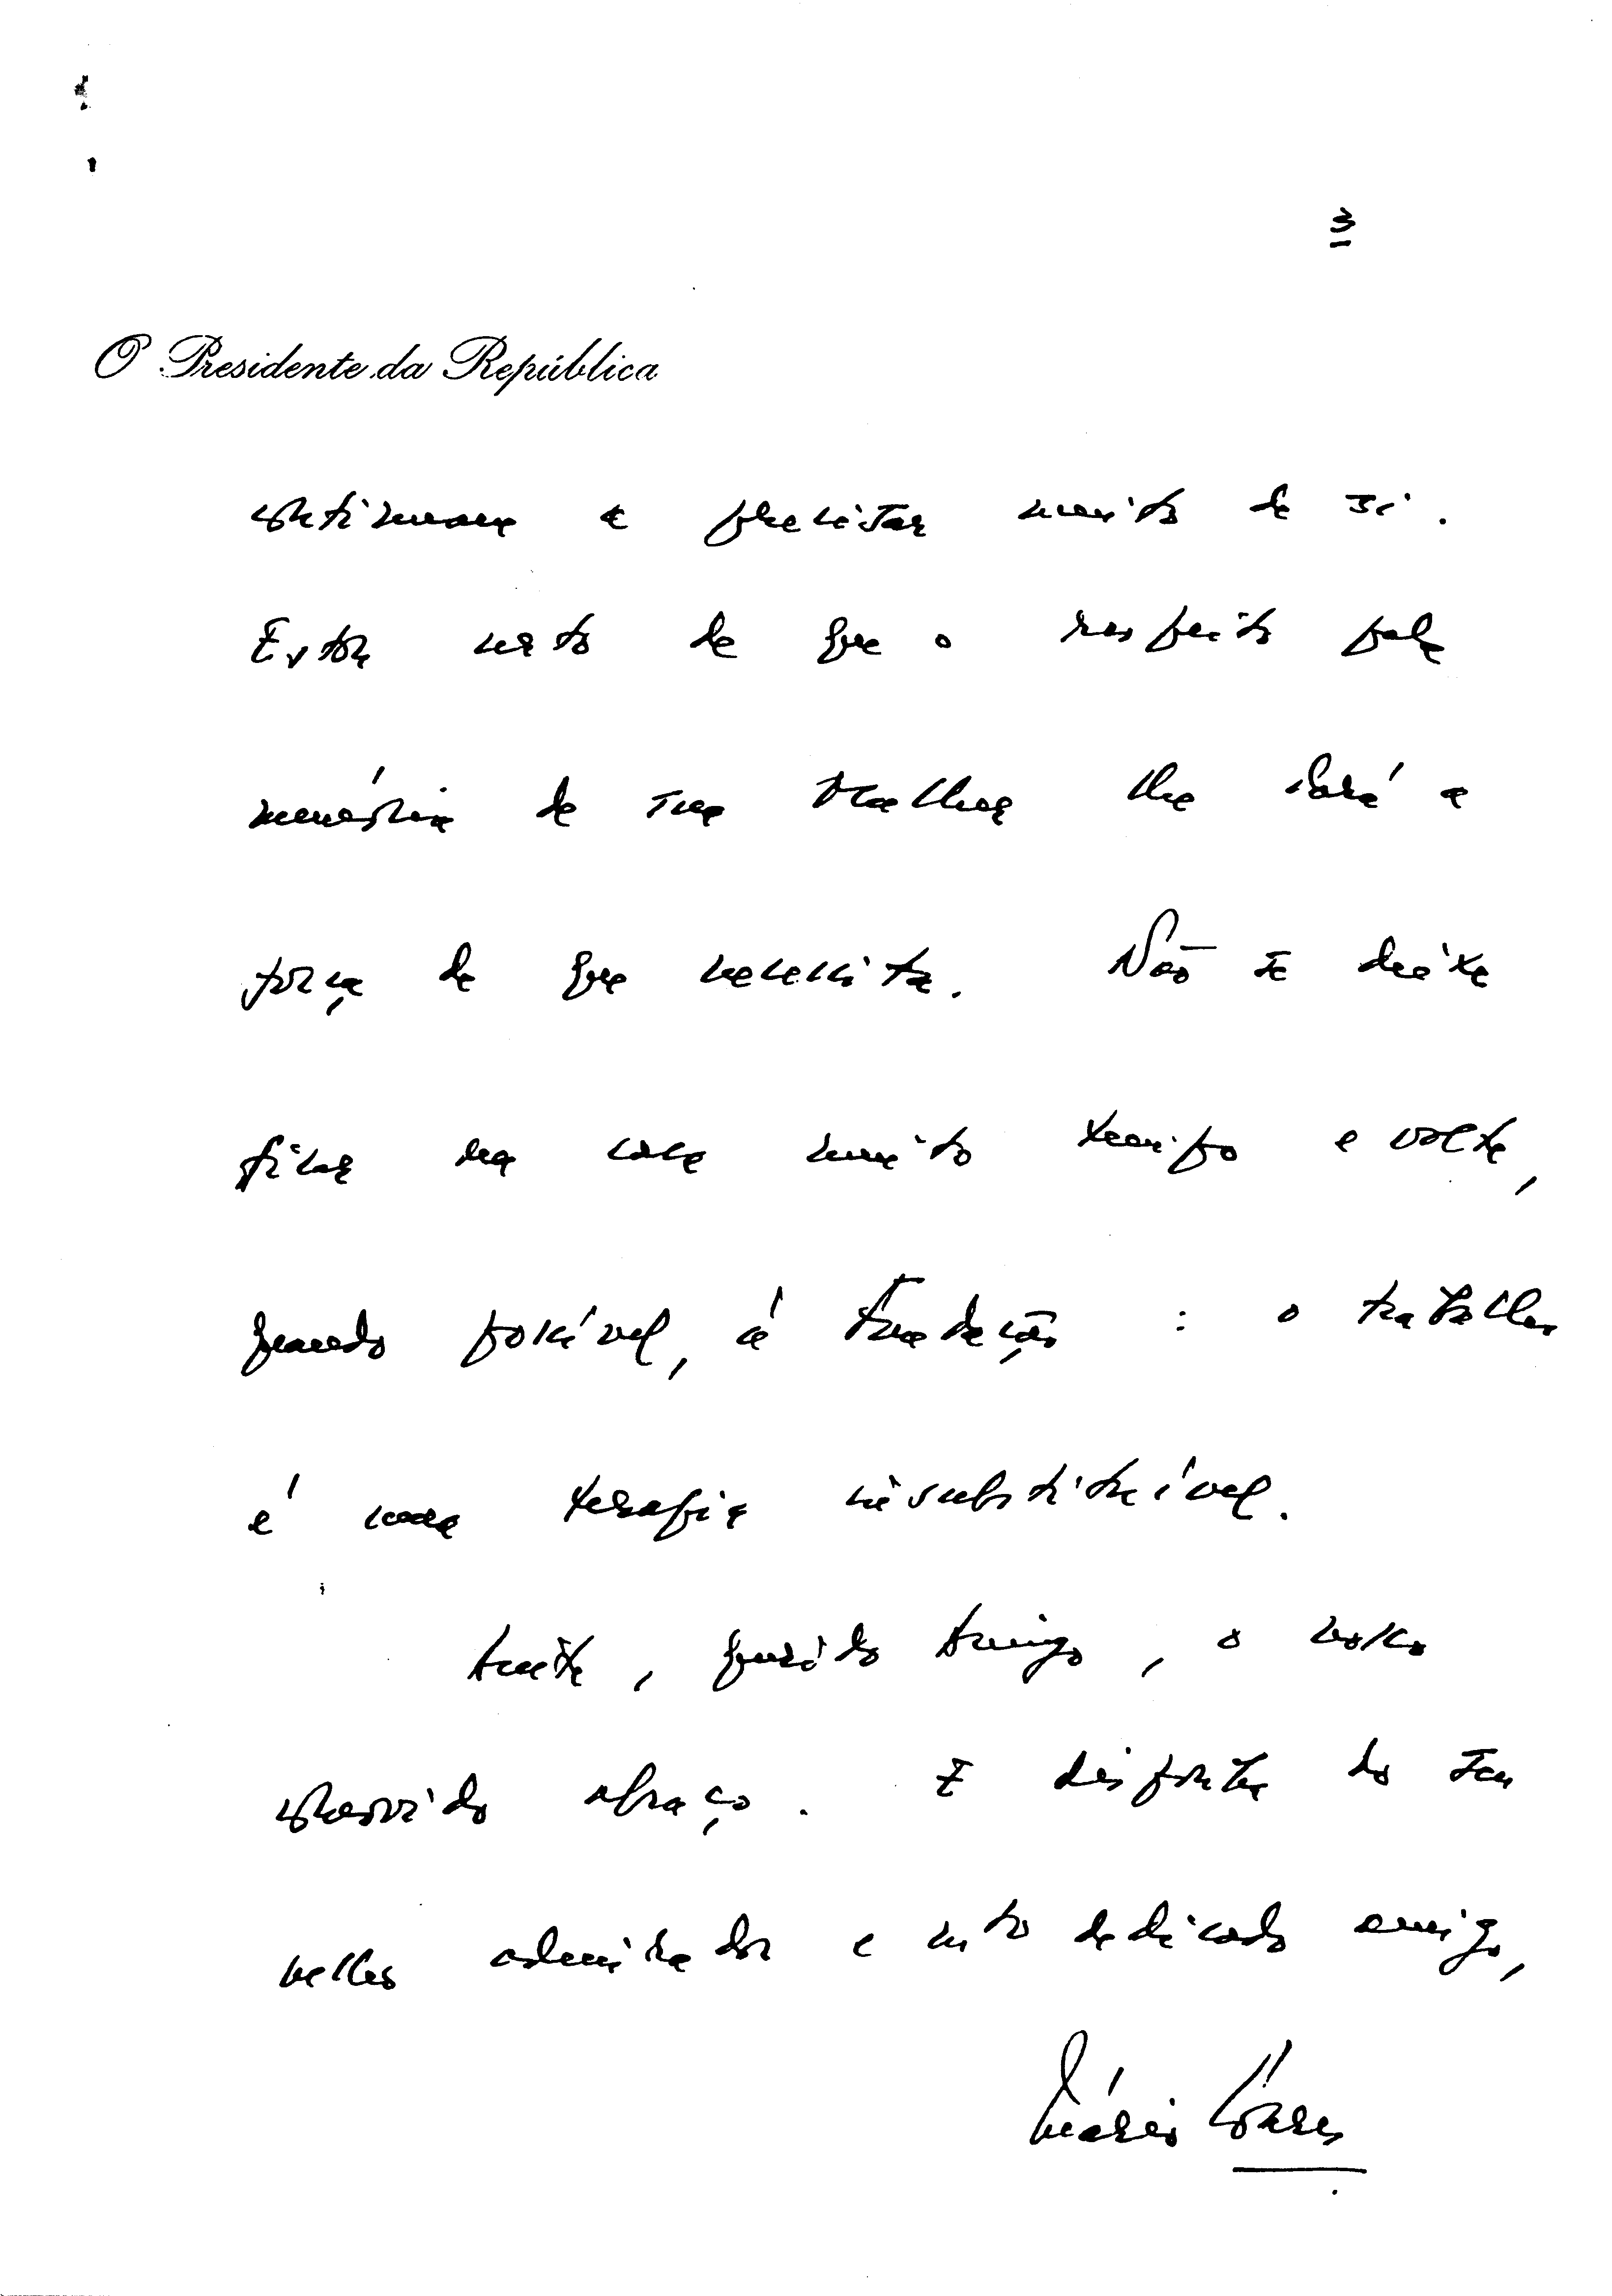 3
O Presidente da República
continuam a precisar muito de si.
Estou certo de que o respeito pela
memória de sua Mulher lhe dará a
força de que necessita. Não se deixe
ficar em casa muito tempo e volte,
quando possível, à Fundação : o trabalho
é uma terapia insubstituível.
Aceite, querido Amigo, o nosso
comovido abraço. E disponha do seu
velho admirador e mto dedicado amigo,
Mário Soares